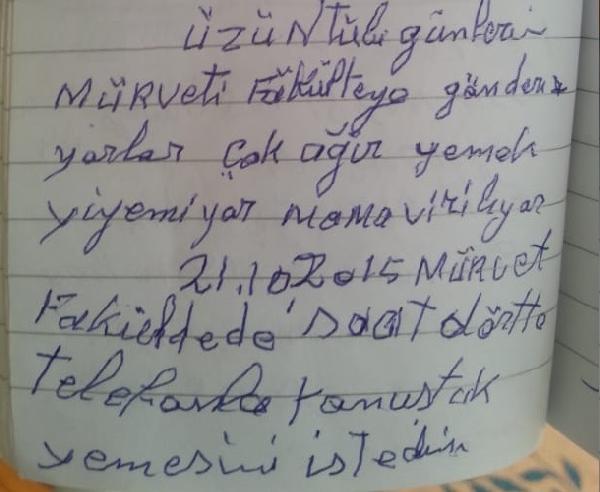 üzüNtülü günleri
MÜRVeti Fäkülteye gönderi
yorlar Çok ağır yemek
yiyemiyor mama viriliyor
21.10.2015 MÜRVet
Fakültede saat dörtte
telefonla konustuk
yemesini istedim